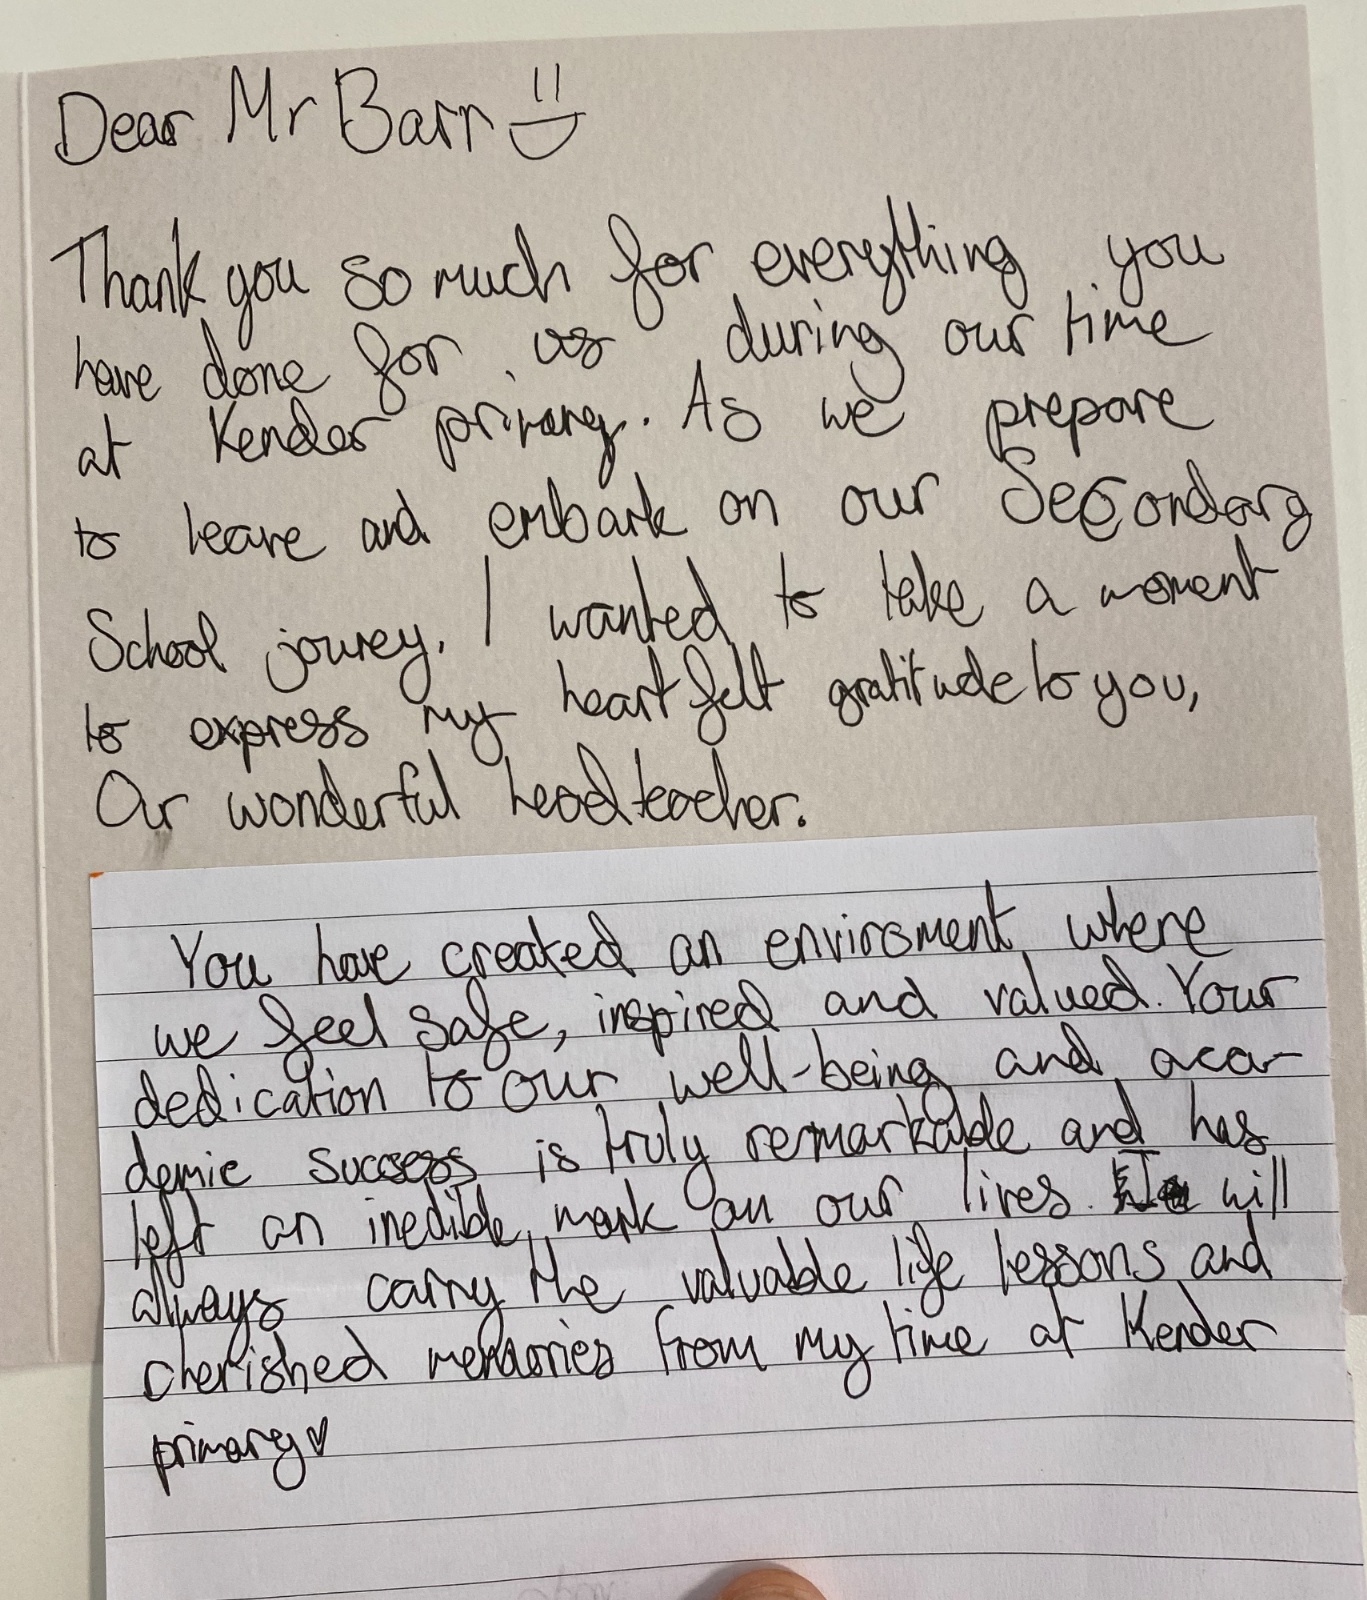 Dear Mr Barr
Thank you so much for everything you
have done for us during our time
at Kender primary. As we prepare
to leave and embark on our Secondary
School jouney. I wanted to take a moment
to express my heartfelt gratitude to you,
Our wonderful headteacher.
You have created an enviroment where
we feel safe, inspired and valued. Your
dedication to our well-being and aca-
demic success is truly remarkable and has
left an inedible mark on our lives. I will
always carry the valuable life lessons and
cherished memories from my time at Kender
primary♥